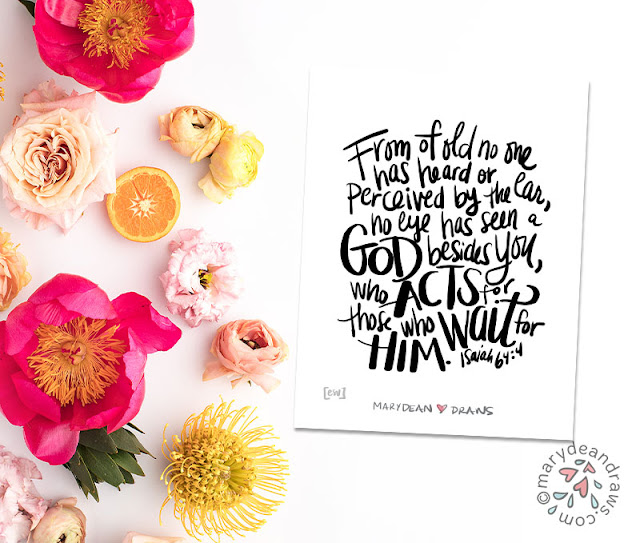 From of old no one
has heard or
perceived by the ear,
no eye has seen a
GOD besides you,
who ACTS for
those who wait for
HIM. Isaiah 64:4
[ew]
MARYDEAN DRAWS
©marydeandraws.com